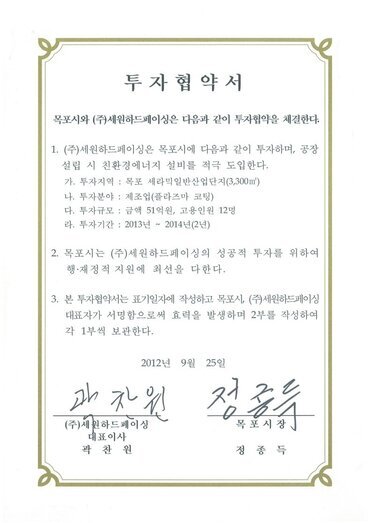 투자협약서
목포시와 (주)세원하드페이싱은 다음과 같이 투자협약을 체결한다.
1. (주)세원하드페이싱은 목포시에 다음과 같이 투자하며, 공장
설립 시 친환경에너지 설비를 적극 도입한다.
가. 투자지역 : 목포 세라믹일반산업단지(3,300㎡)
나. 투자분야 : 제조업(플라즈마 코팅)
다. 투자규모 : 금액 51억원, 고용인원 12명
라. 투자기간 : 2013년 ~ 2014년(2년)
2. 목포시는 (주)세원하드페이싱의 성공적 투자를 위하여
행·재정적 지원에 최선을 다한다.
3. 본 투자협약서는 표기일자에 작성하고 목포시, (주)세원하드페이싱
대표자가 서명함으로써 효력을 발생하며 2부를 작성하여
각 1부씩 보관한다.
2012년 9월 25일
곽찬원 정종득
(주)세원하드페이싱 목포시장
대표이사
곽찬원 정종득